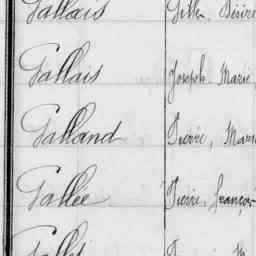 Gallais Gilles, Désiré
Gallais Joseph Marie
Galland Pierre, Marie
Gallée Pierre, françois